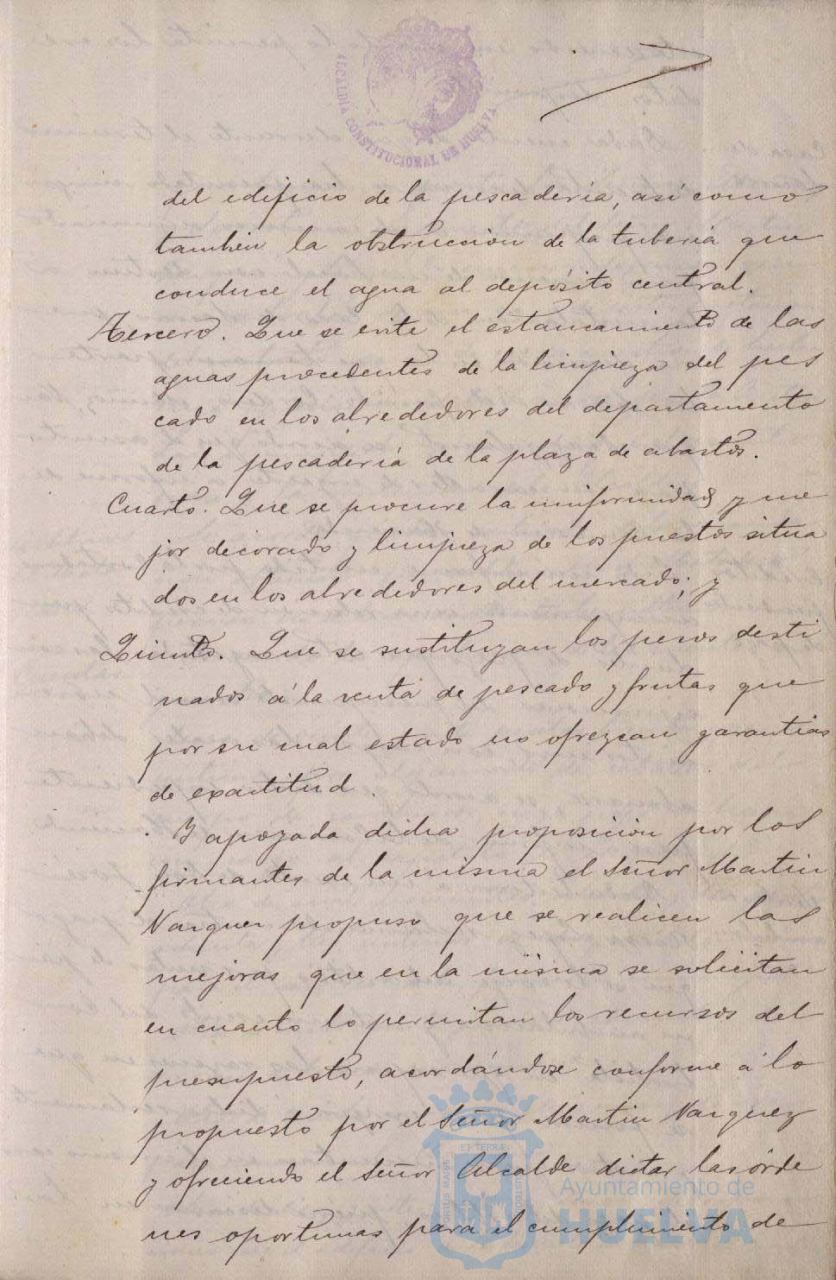 ALCALDIA CONSTITUCIONAL DE HUELVA
del edificio de la pescaderia, asi como
tambien la obstruccion de la tuberia que
conduce el agua al depósito central.
Tercero. Que se evite el estancamiento de las
aguas procedentes de la limpieza del pes
cado en los alrededores del departamento
de la pescaderia de la plaza de abastos.
Cuarto. Que se procure la uniformidad y me
jor decorado y limpieza de los puestos situa
dos en los alrededores del mercado; y
Quinto. Que se sustituyan los pesos desti
nados á la venta de pescado y frutas que
por su mal estado no ofrezcan garantias
de exactitud.
Y apoyada dicha proposición por los
firmantes de la misma el Señor Martin
Vazquez propuso que se realicen las
mejoras que en la misma se solicitan
en cuanto lo permitan los recursos del
presupuesto, acordándose conforme á lo
propuesto por el Señor Martin Vazquez
y ofreciendo el Señor Alcalde dictar las órde
nes oportunas para el cumplimento de
Ayuntamiento de
HUELVA